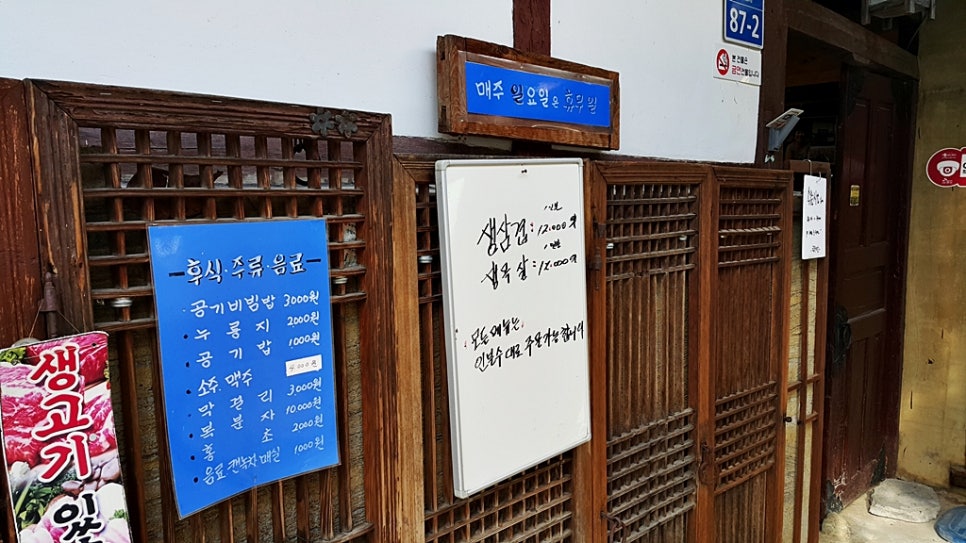 매주 일요일은 휴무일
87-2
본 건물은
금연건물입니다
후식·주류·음료
공기비빔밥 3000원
누룽지 2000원
공기밥 1000원
소주·맥주 4,000원
막걸리 3000원
복분자 10,000원
홍초 2000원
음료 캔녹차매실 1000원
생삼겹: 12.000원
생목살: 12.000원
모든 메뉴는
인분수대로 주문가능합니다
생고기 있